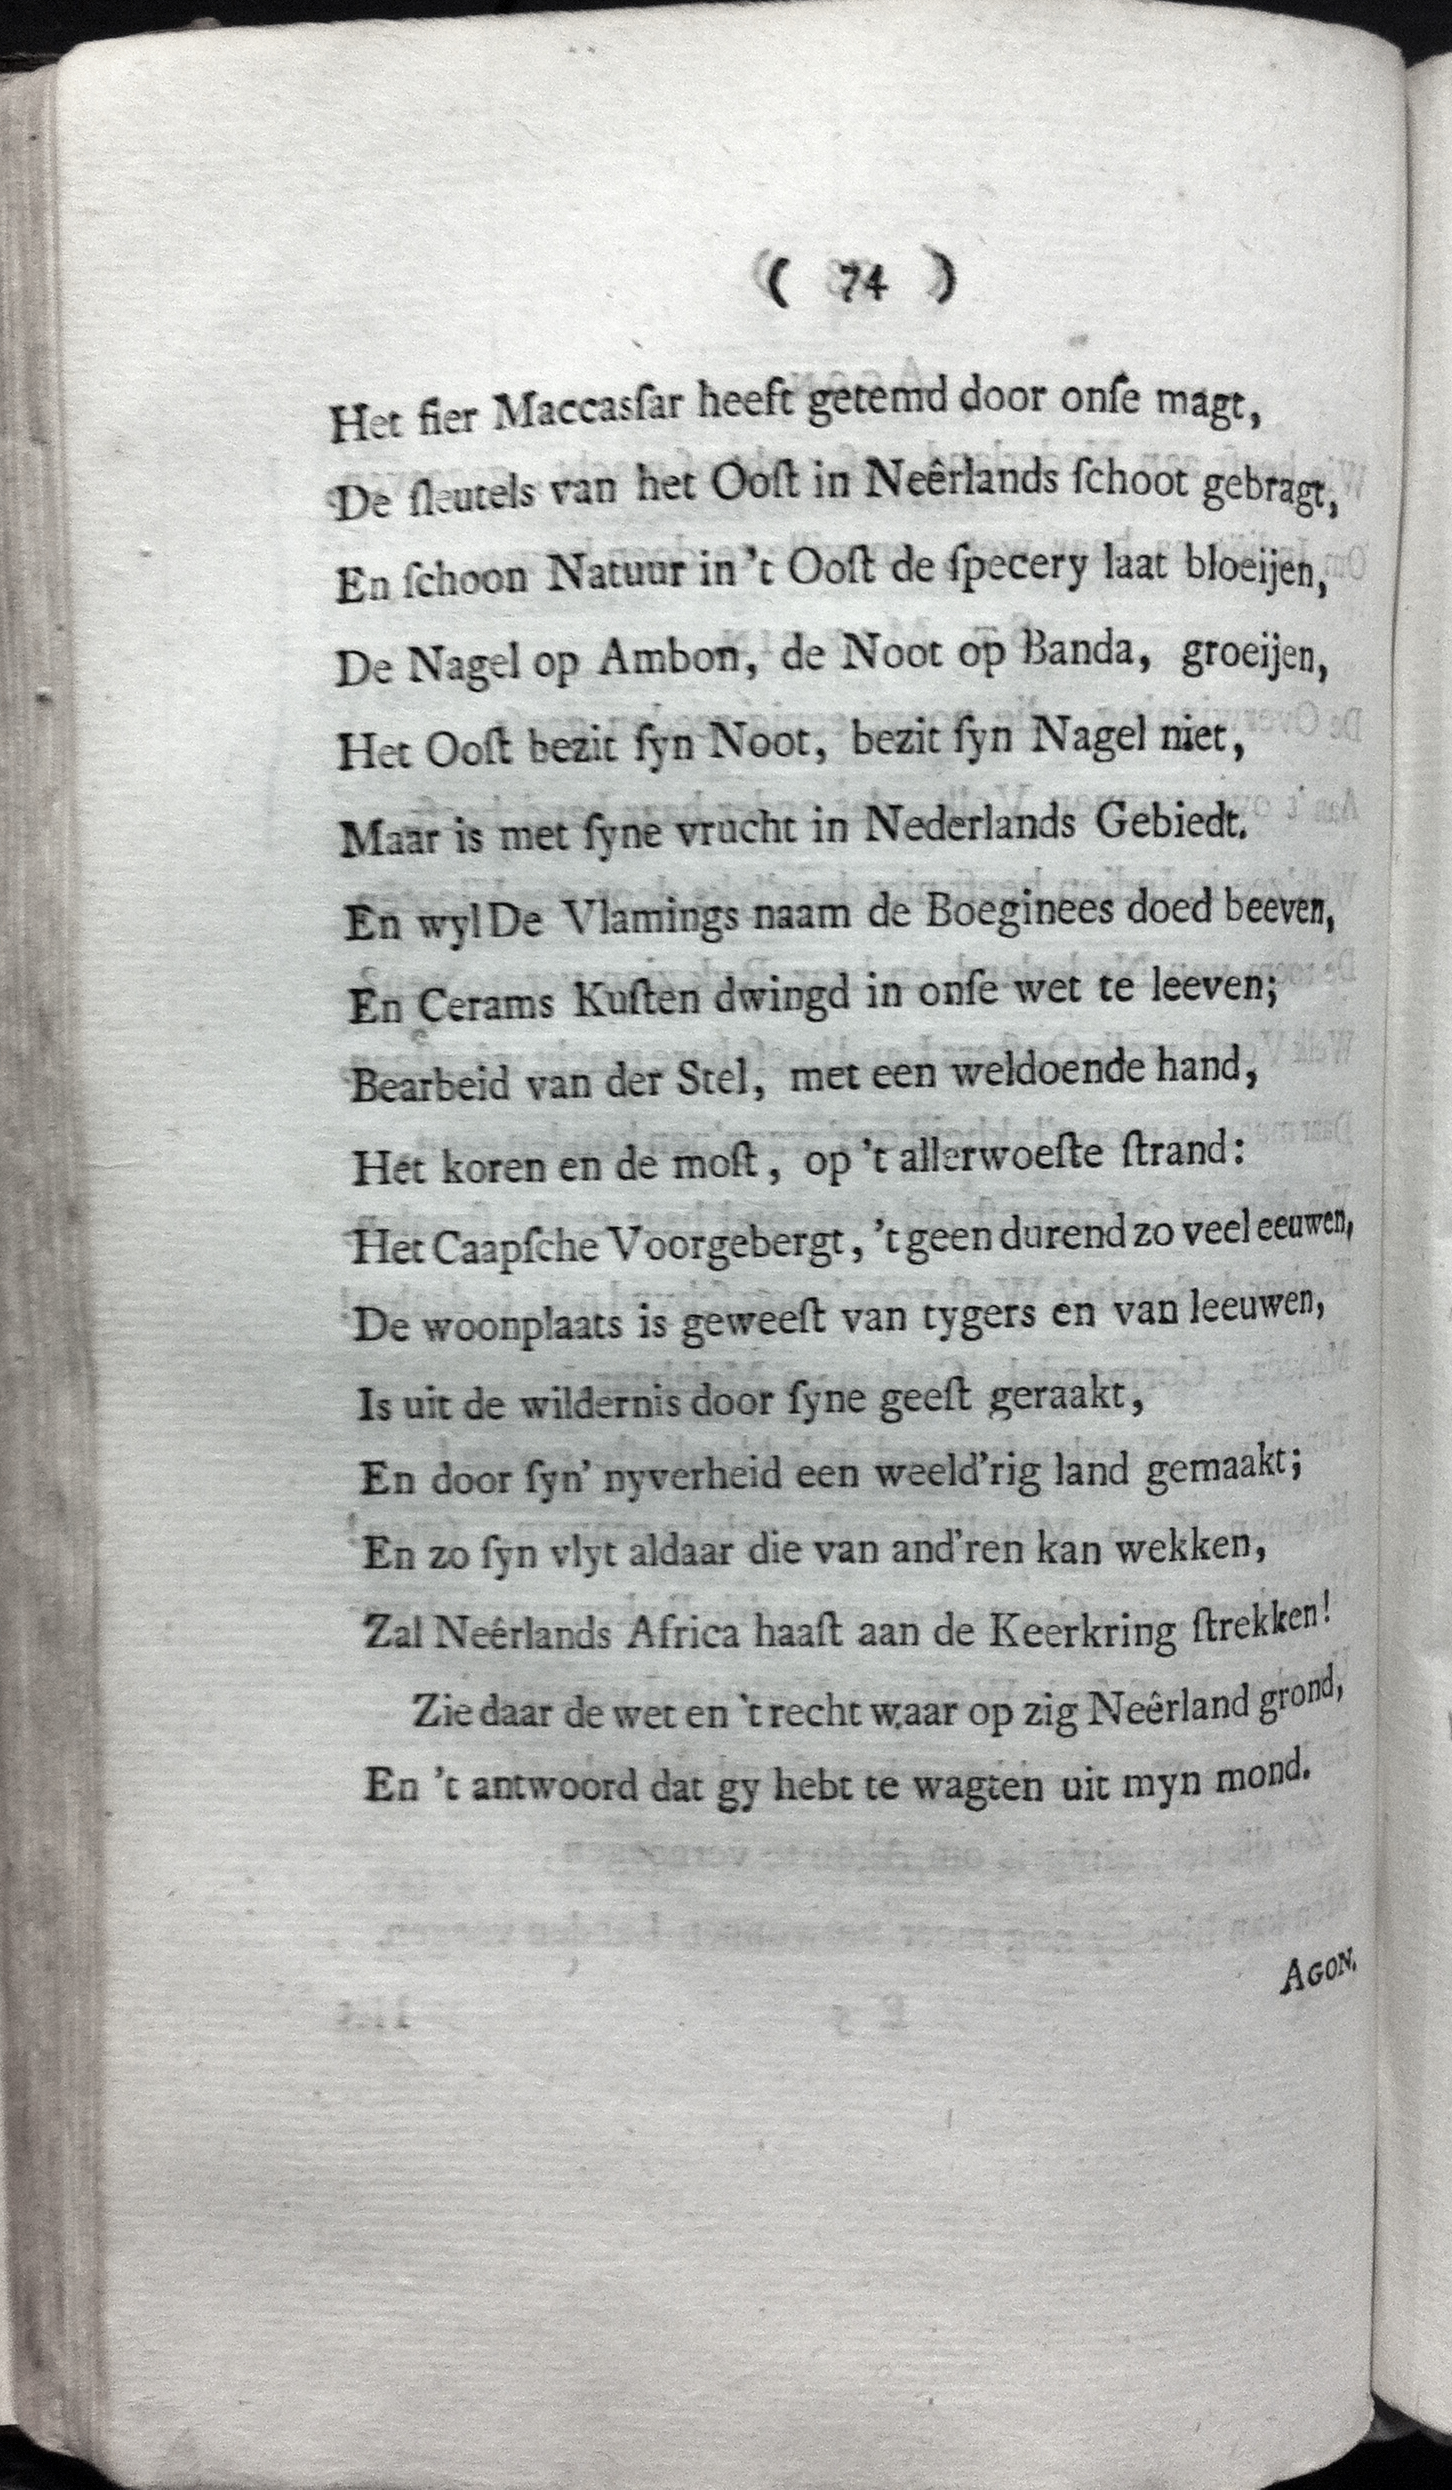 ( 74 )
Het fier Maccasſar heeft getemd door onſe magt,
De ſleutels van het Ooſt in Neêrlands ſchoot gebragt,
En ſchoon Natuur in 't Ooſt de ſpecery laat bloeijen,
De Nagel op Ambon, de Noot op Banda, groeijen,
Het Ooſt bezit ſyn Noot, bezit ſyn Nagel niet,
Maar is met ſyne vrucht in Nederlands Gebiedt.
En wyl De Vlamings naam de Boeginees doed beeven,
En Cerams Kuſten dwingd in onſe wet te leeven;
Bearbeid van der Stel, met een weldoende hand,
Het koren en de moſt, op 't allerwoeſte ſtrand:
Het Caapſche Voorgebergt, 't geen durend zo veel eeuwen,
De woonplaats is geweeſt van tygers en van leeuwen,
Is uit de wildernis door ſyne geeſt geraakt,
En door ſyn' nyverheid een weeld'rig land gemaakt;
En zo ſyn vlyt aldaar die van and'ren kan wekken,
Zal Neêrlands Africa haaſt aan de Keerkring ſtrekken!
Zie daar de wet en 't recht waar op zig Neêrland grond,
En 't antwoord dat gy hebt te wagten uit myn mond.
AGON.